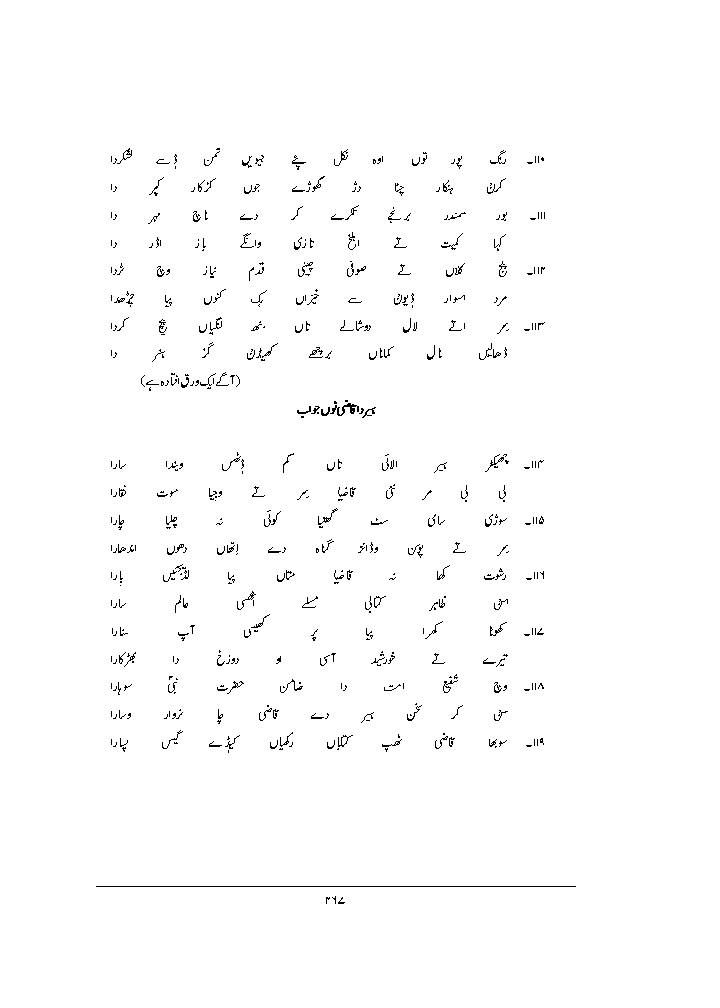 ۱۱۰۔ رنگ پور توں اوہ نکل پئے جیویں تمن ڈسے لشکردا
کرن ہنکار چنا دڑ گھوڑے جوں کڑکار کپر دا
۱۱۱۔ بور سمندر برنجے نکرے کر دے ناچ مہر دا
کہا کمیت تے ابلخ تازی وانگے باز اڈر دا
۱۱۲۔ پنج کلاں تے صوفی چینی قدم نیاز وچ ٹردا
مرد اسوار ڈیون سے خیزاں ہک کنوں پیا چڑھدا
۱۱۳۔ سر اتے لال دوشالے ناں بنھ لنگیاں پچ کردا
ڈھالیں نال کماناں برچھے کھیڈن گز ہنر دا
(آگے ایک ورق افتادہ ہے)
ہیر دا قاضی نوں جواب
۱۱۴۔ چھیکڑ ہیر الائی ناں کم ڈٹھس ویندا سارا
بی بی مر نئی قاضیا سر تے وجیا موت نقارا
۱۱۵۔ سوڑی سامی سٹ گھتیا کوئی نہ چلیا چارا
سر تے پون وڈانز گناہ دے اتھاں دھوں اندھارا
۱۱۶۔ رشوت کھا نہ قاضیا متاں پیا لڈیجئیں بارا
سن ظاہر کتابی مسلے اٹھسی عالم سارا
۱۱۷۔ کھوٹا کھرا پیا پر کھیسی آپ ستارا
تیرے تے خورشید آسی او دوزخ دا بھڑکارا
۱۱۸۔ وچ شفیع امت دا ضامن حضرت نبیؐ سوہارا
سن کر سخن ہیر دے قاضی چا نروار وسارا
۱۱۹۔ سوبھا قاضی ٹھپ کتاباں رکھیاں کیڈے گیس پسارا
۲۶۷